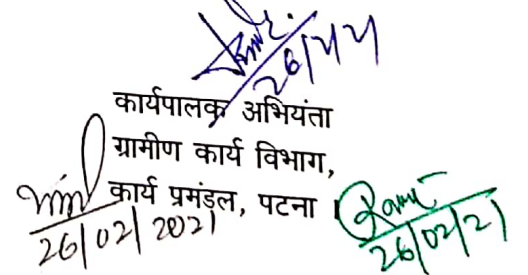 26/2/21
कार्यपालक अभियंता
ग्रामीण कार्य विभाग,
कार्य प्रमंडल, पटना ।
26/02/2021
26/02/21